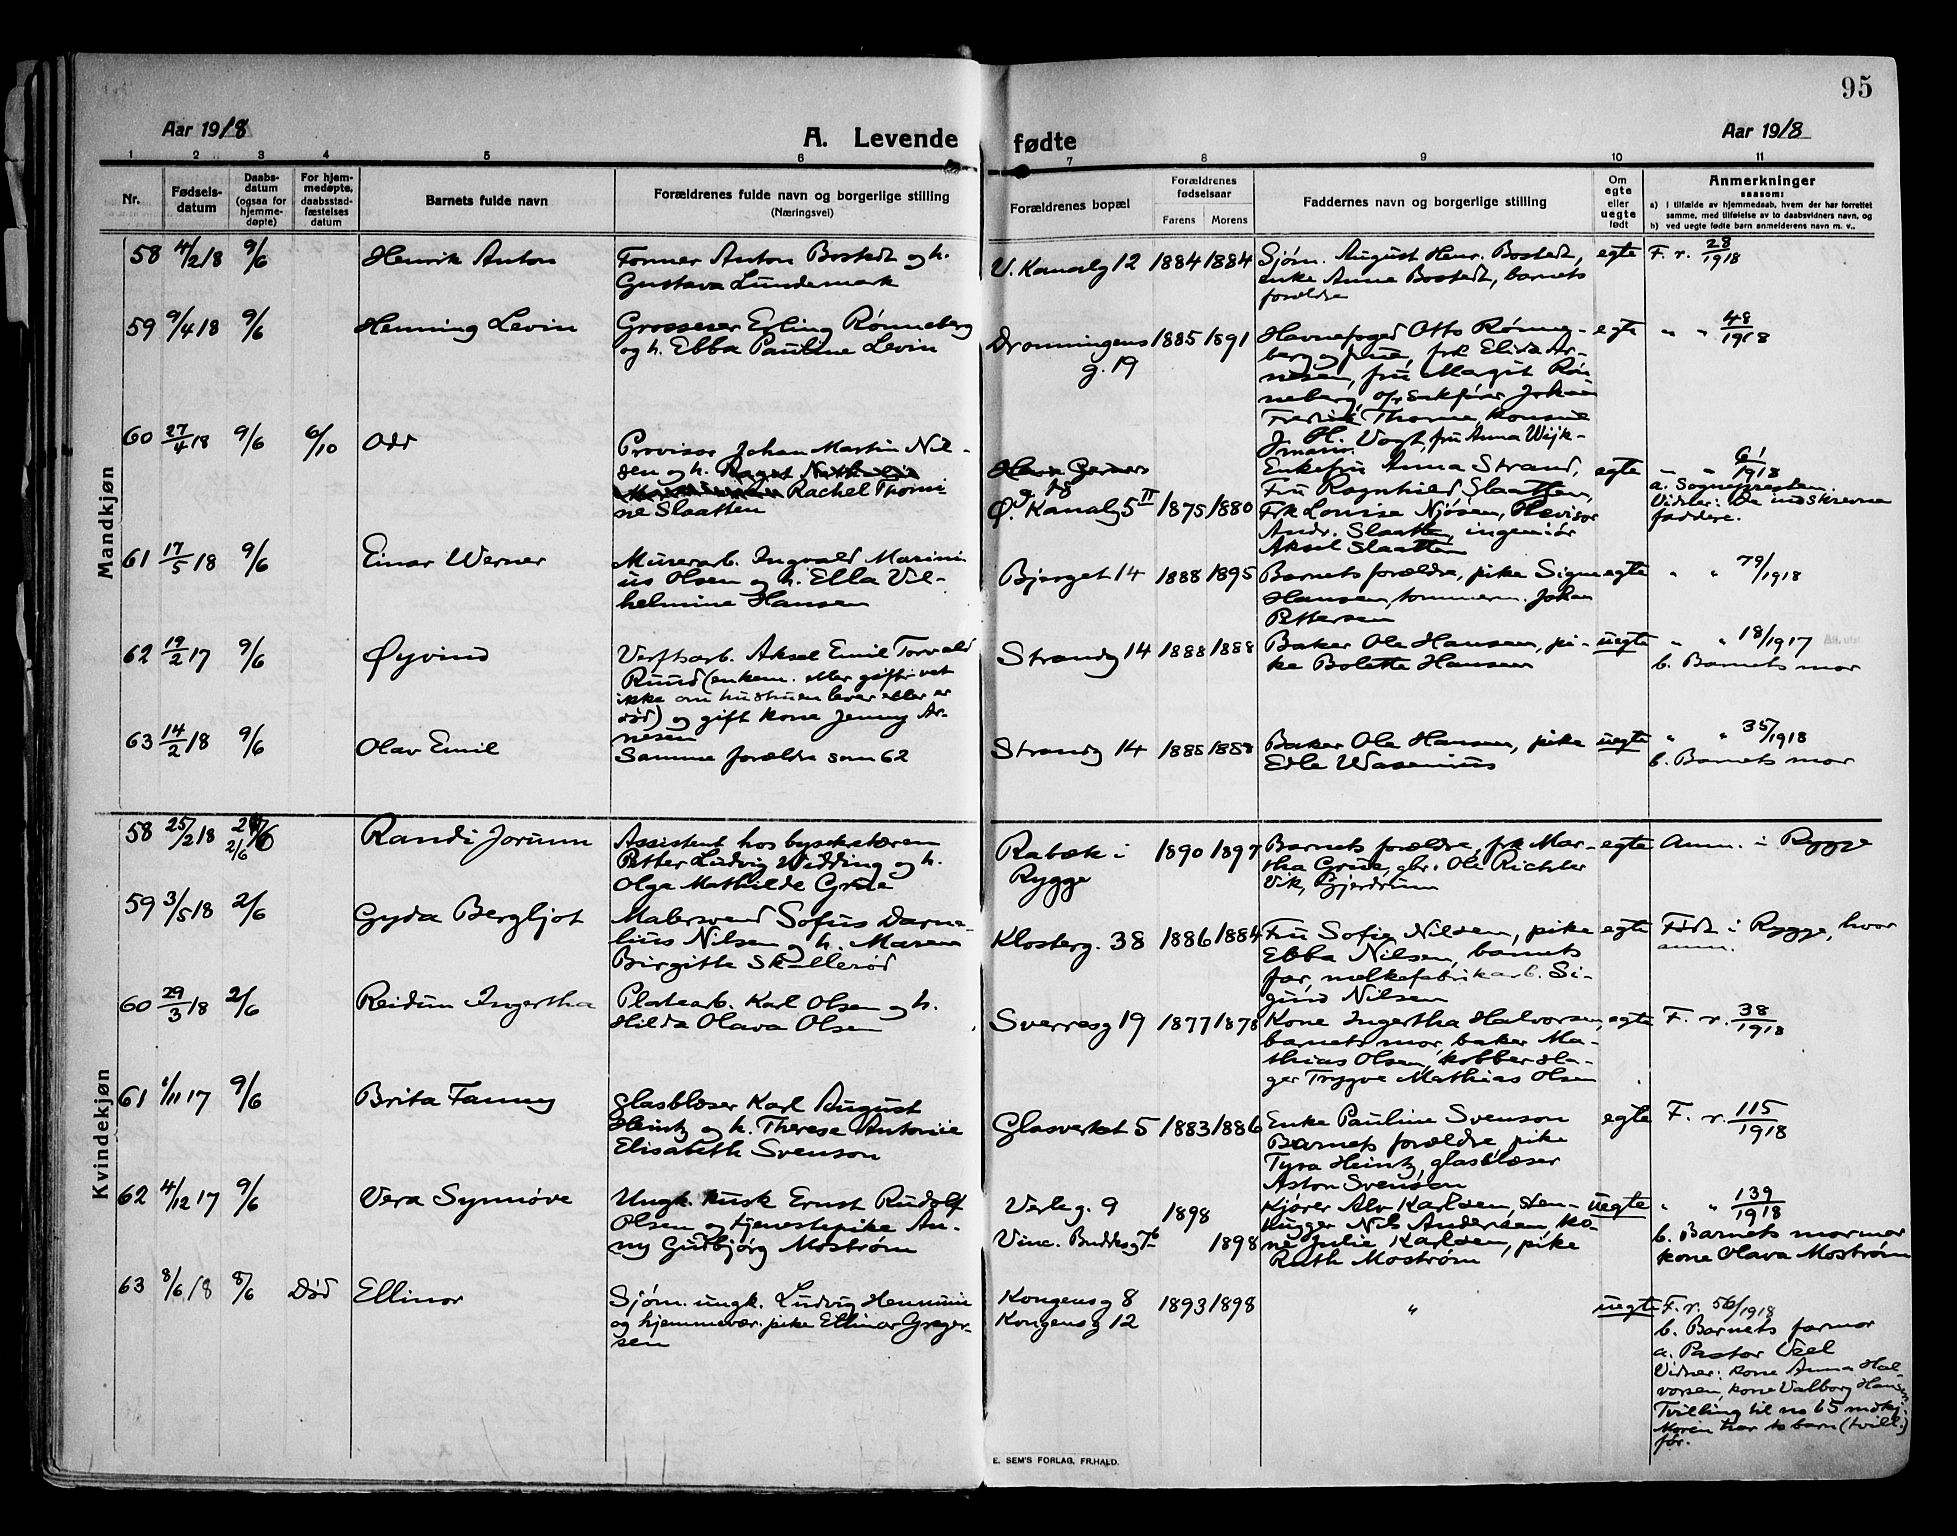 95
Aar 1918
A. Levende fødte
Aar 1918
1 2 3 4 5 6 7 8 9 10 11
Nr.
Fødsels-
datum
Daabs-
datum
(ogsaa for
hjemme-
døpte)
For hjem-
medøpte,
daabsstad-
fæstelses
datum
Barnets fulde navn
Forældrenes fulde navn og borgerlige stilling
(Næringsvei)
Forældrenes bopæl
Forældrenes
fødselsaar
Farens Morens
Faddernes navn og borgerlige stilling
Om
egte
eller
uegte
født
Anmerkninger
saasom:
a) I tilfælde av hjemmedaab, hvem der har forrettet
samme, med tilføielse av to daabsvidners navn, og
b) ved uegte fødte barn anmelderens navn m. v..
Mandkjøn
58 4/2 18 9/6 Henrik Anton
Former Anton Bostedt og h.
Gustava Lundemark
V. Kanalg 12 1884 1884
Sjøm. August Henr. Bostedt,
enke Anne Bostedt, barnets
forældre
egte F. r. 28/1918
59 9/4 18 9/6 Henning Levin
Grosserer Erling Rønneberg
og h. Ebba Pauline Levin
Dronningens
g. 19
1885 1891
Havnefoged Otto Rønne-
berg og frue, frk Elida Ar-
nesen, fru Margit Røn-
neberg, Johan
Fredrik Thorne, konsul
J. H. Vogt, fru Anna Wijk-
mann
egte " " 48/1918
60 27/4 18 9/6 6/10 Odd
Provisor Johan Martin Nil-
sen og h.
Rachel Thomi-
ne Slaatten
Gerners
g. 18
Ø. Kanalg 5 II 1875 1880
Enkefru Anna Strand,
Fru Ragnhild Slaatten,
Frk Louise Njøsen, Revisor
Andr. Slaatten, ingeniør
Aksel Slaatten
egte " " 61/1918
a. Sognepresten.
Vidner: De indskrevne
faddere.
61 17/5 18 9/6 Einar Werner
Murerarb. Ingvald Marini-
us Olsen og h. Ella Vil-
helmine Hansen
Bjerget 14 1888 1895
Barnets forældre, pike Signe
Hansen, tømmerm. Johan
Pettersen
egte " " 79/1918
62 19/2 17 9/6 Øyvind
Verftsarb. Aksel Emil Torvald
Ruud (enkem. eller gift: vet
ikke om hustruen lever eller er
død) og gift kone Jenny Ar-
nesen
Strandg 14 1888 1888
Baker Ole Hansen, pi-
ke Bolette Hansen
uegte " " 18/1917
b. Barnets mor
63 14/2 18 9/6 Olav Emil
Samme forældre som 62
Strandg 14 1888 1888
Baker Ole Hansen, pike
Edle Wasenius
uegte " " 35/1918
b. Barnets mor
Kvindekjøn
58 25/2 18 2/6 Randi Jorunn
Assistent hos bysekretæren
Petter Ludvig Widding og h.
Olga Mathilde Grue
Rabæk i
Rygge
1890 1897
Barnets forældre, frk Mar-
tha Grue, gbr. Ole Richter
Vik, Bjerdrum
egte Anm. i Rygge
59 3/5 18 2/6 Gyda Bergljot
Malersvend Sofus Darne-
lius Nilsen og h. Maren
Birgitte Skallerød
Klosterg. 38 1886 1884
Fru Sofie Nilsen, pike
Ebba Nilsen, barnets
far, melkefabrikarb. Si-
gurd Nilsen
egte Født i Rygge, hvor
anm.
60 29/3 18 2/6 Reidun Ingertha
Platearb. Karl Olsen og h.
Hilda Olava Olsen
Sverresg 19 1877 1878
Kone Ingertha Halvorsen,
barnets mor, baker Ma-
thias Olsen, kobbersla-
ger Trygve Mathias Olsen
egte F. r. 38/1918
61 1/11 17 9/6 Brita Fanny
Glasblæser Karl August
Heintz og h. Therese Antonie
Elisabeth Svenson
Glasverket 5 1883 1886
Enke Pauline Svenson
Barnets forældre, pike
Tyra Heintz, glasblæser
Aston Svenson
egte F. r. 115/1918
62 4/12 17 9/6 Vera Synnøve
Ungk. kusk Ernst Rudolf
Olsen og tjenestepike An-
ny Gudbjørg Mostrøm
Verleg. 9 1898
Vinc. Buddesg 7b 1898
Kjører Alv Karlsen, sten-
hugger Nils Andersen, ko-
ne Julie Karlsen, pike
Ruth Mostrøm
uegte " " 139/1918
b. Barnets mormor
kone Olava Mostrøm
63 8/6 18 8/6 Død Ellinor
Sjøm. ungk. Ludvig Henninie
og hjemmevær. pike Ellinor Greger-
sen
Kongensg 8
Kongensg 12
1893 1898
"
uegte F. r. 56/1918
b. Barnets farmor
a. Pastor Veel
Vidner: kone Anna Hal-
vorsen, kone Valborg Hansen
Tvilling til no 65 mdkj.
Moren har to barn (tvill.)
før.
E. SEM'S FORLAG, FR.HALD.